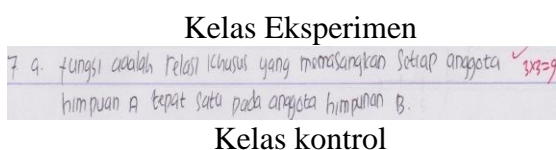 Kelas Eksperimen
7 a. fungsi adalah relasi khusus yang memasangkan Setiap anggota ✓ 3x3=9
himpuan A tepat satu pada anggota himpunan B.
Kelas kontrol